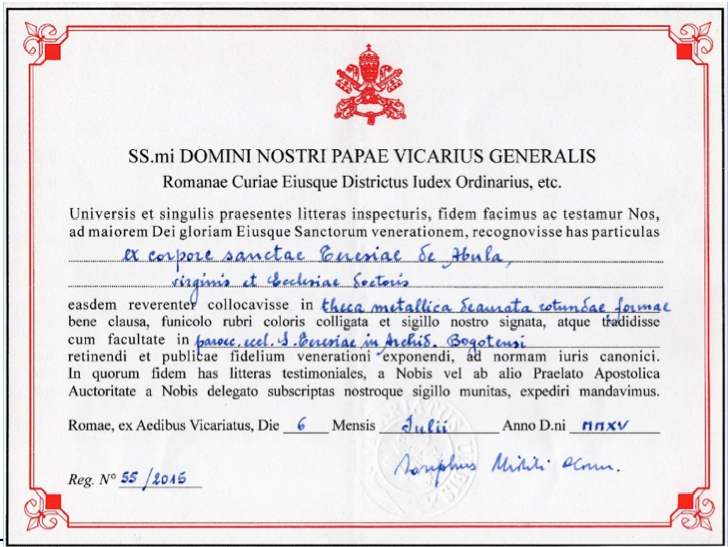 SS.mi DOMINI NOSTRI PAPAE VICARIUS GENERALIS
Romanae Curiae Eiusque Districtus Iudex Ordinarius, etc.
Universis et singulis praesentes litteras inspecturis, fidem facimus ac testamur Nos,
ad maiorem Dei gloriam Eiusque Sanctorum venerationem, recognovisse has particulas
ex corpore sanctae Teresiae de Abula,
virginis et Ecclesiae doctoris
easdem reverenter collocavisse in theca metallica deaurata rotundae formae
bene clausa, funicolo rubri coloris colligata et sigillo nostro signata, atque tradidisse
cum facultate in paroec. eccl. S. Teresiae in Archid. Bogotensi
retinendi et publicae fidelium venerationi exponendi, ad normam iuris canonici.
In quorum fidem has litteras testimoniales, a Nobis vel ab alio Praelato Apostolica
Auctoritate a Nobis delegato subscriptas nostroque sigillo munitas, expediri mandavimus.
Romae, ex Aedibus Vicariatus, Die 6 Mensis Iulii Anno D.ni MMXV
Reg. N° 55/2015